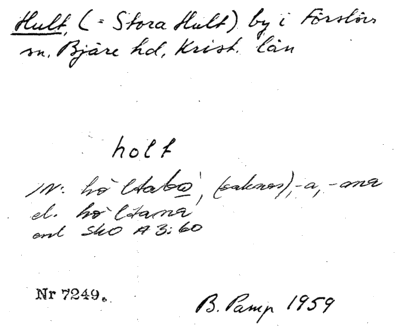 Hult, (= Stora Hult) by i Förslövs
sn. Bjäre hd, Krist. län
holt
IN: hòltabo, (saknas), -a, -ana
el. hòltarna
enl SkO A3:60
Nr 7249. B. Pamp 1959